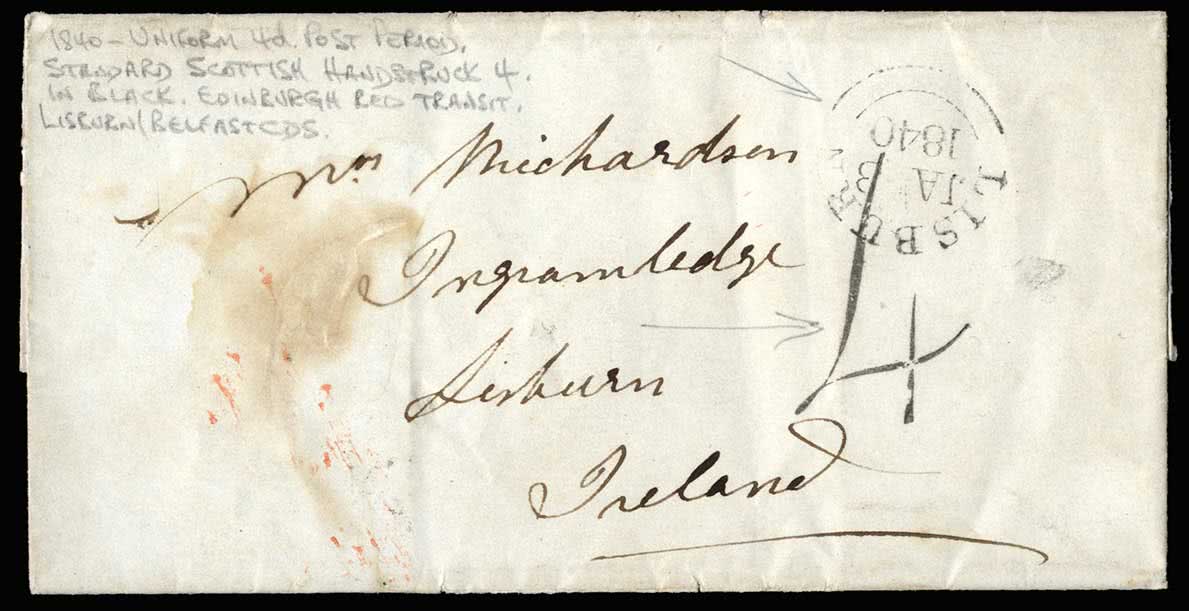 1840 - UNIFORM 4d. POST PERIOD.
STANDARD SCOTTISH HANDSTRUCK 4.
IN BLACK. EDINBURGH RED TRANSIT.
LISBURN/BELFAST CDS.
LISBURN
JA
1840
4
Mrs Richardson
Ingramledge
Lisburn
Ireland